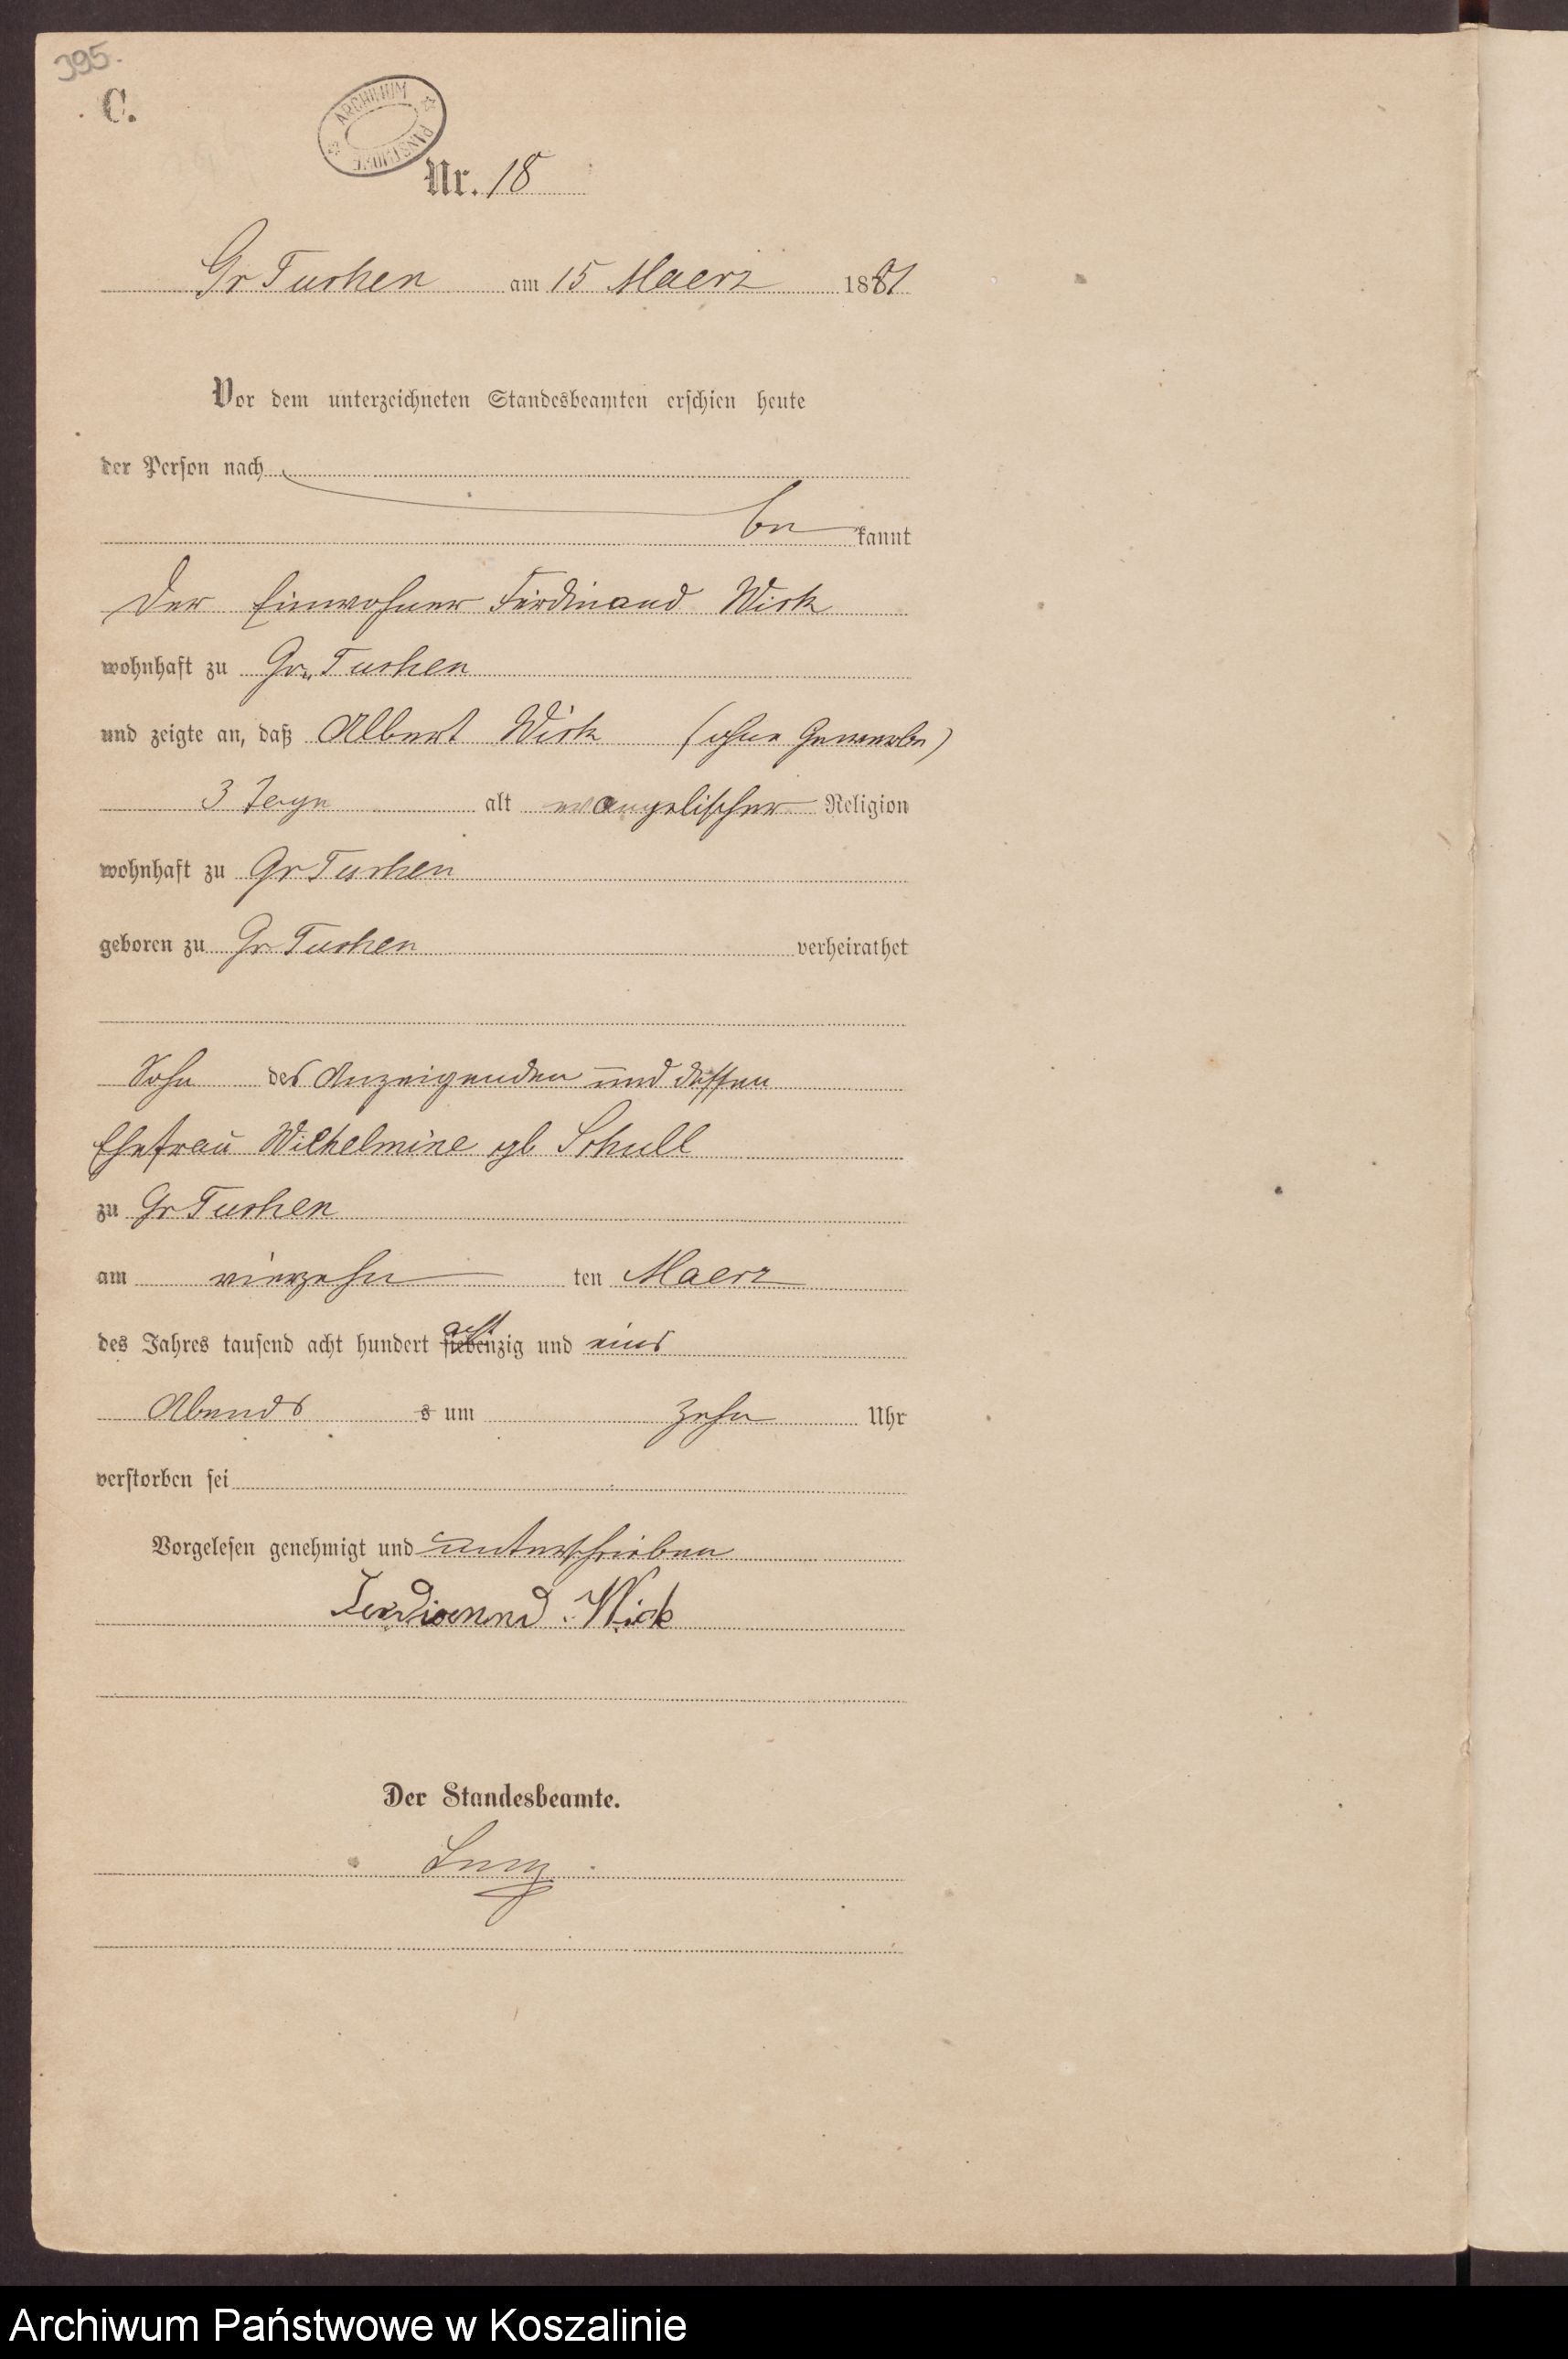 395.
C.
ARCHIWUM PAŃSTWOWE
Nr. 18
Gr Tuchen am 15 Maerz 1881
Vor dem unterzeichneten Standesbeamten erschien heute
der Person nach
be kannt
der Einwohner Ferdinand Wick
wohnhaft zu Gr. Tuchen
und zeigte an, daß Albert Wick (ohne Gewerbe)
3 Tage alt evangelischer Religion
wohnhaft zu Gr Tuchen
geboren zu Gr Tuchen verheirathet
Sohn des Anzeigenden und dessen
Ehefrau Wilhelmine gb Schull
zu Gr Tuchen
am vierzehn ten Maerz
des Jahres tausend acht hundert siebenzig acht und eins
Abends s um zehn Uhr
verstorben sei
Vorgelesen genehmigt und unterschrieben
Ferdienend Wick
Der Standesbeamte.
Archiwum Państwowe w Koszalinie